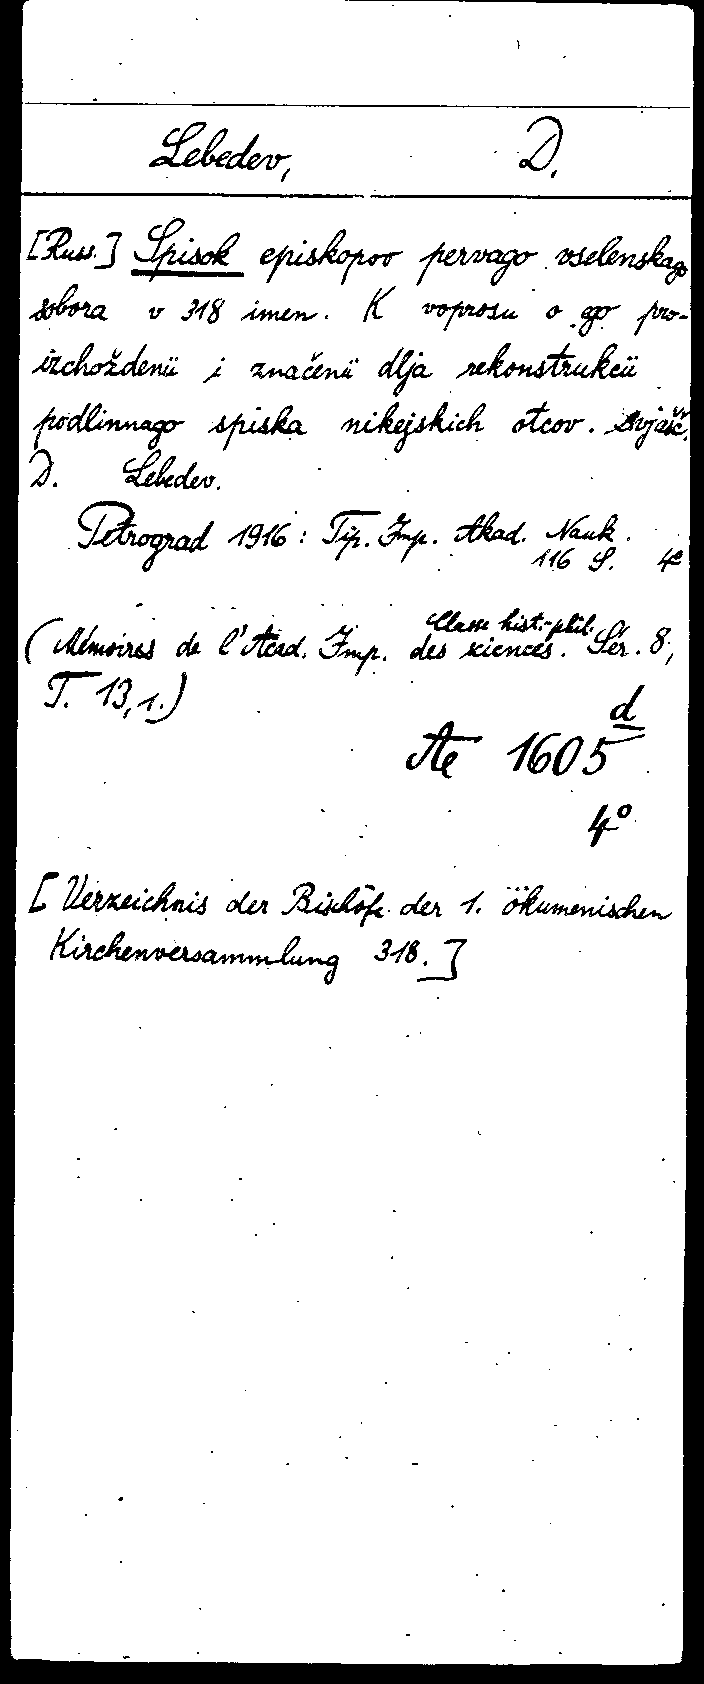 Lebedev, D.
[Russ.] Spisok episkopov pervago vselenskago
sobora v 318 imen. K voprosu o go pro-
izchoždenii i značenii dlja rekonstrukcii
podlinnago spiska nikejskich otcov. Svjašč.
D. Lebedev.
Petrograd 1916: Tip. Imp. Akad. Nauk.
116 S. 4°
Classe hist.-phil.
(Mémoires de l'Acad. Imp. des sciences. Sér. 8,
T. 13,1.)
d
Ae 1605
4°
[Verzeichnis der Bischöfe der 1. ökumenischen
Kirchenversammlung 318.]